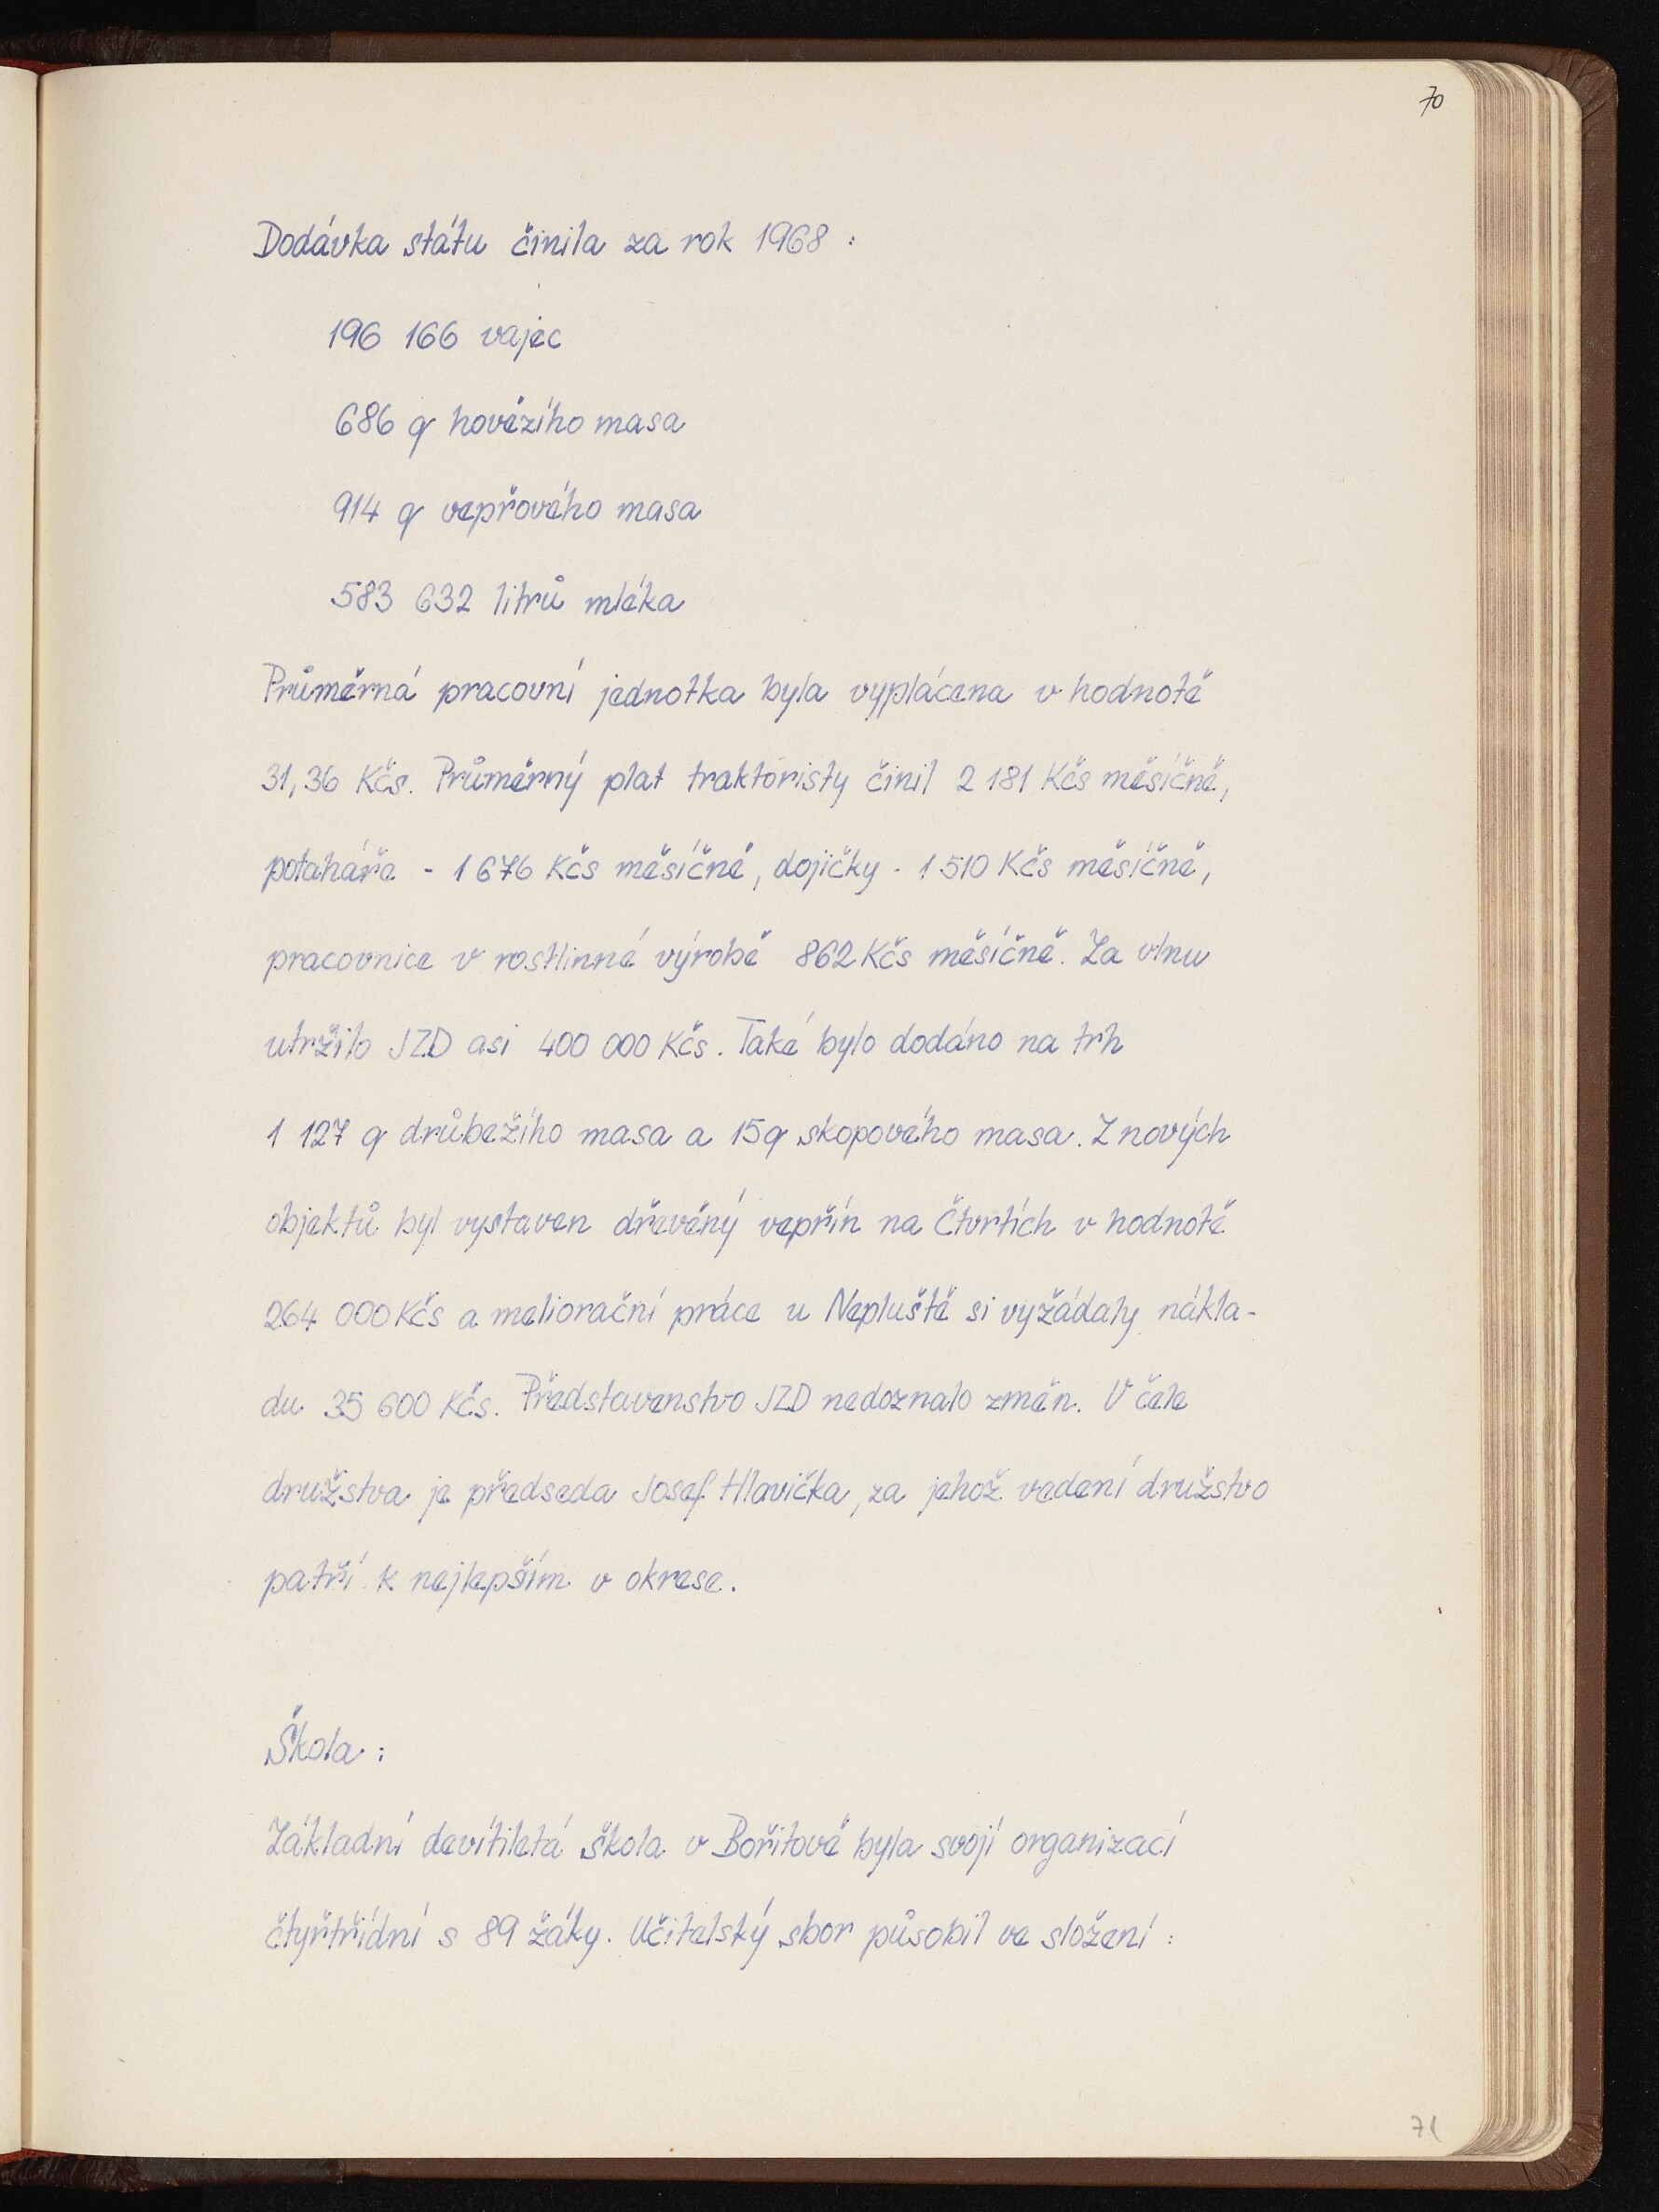 70
Dodávka státu činila za rok 1968 :
196 166 vajec
686 q hovězího masa
914 q vepřového masa
583 632 litrů mléka
Průměrná pracovní jednotka byla vyplácena v hodnotě
31,36 Kčs. Průměrný plat traktoristy činil 2 181 Kčs měsíčně,
potahářa - 1 676 Kčs měsíčně, dojičky - 1 510 Kčs měsíčně,
pracovnice v rostlinné výrobě 862 Kčs měsíčně. Za vlnu
utržilo JZD asi 400 000 Kčs. Také bylo dodáno na trh
1 127 q drůbežího masa a 15 q skopového masa. Z nových
objektů byl vystaven dřevěný vepřín na Čtvrtích v hodnotě
264 000 Kčs a meliorační práce u Nepluště si vyžádaly nákla-
du 35 600 Kčs. Představenstvo JZD nedoznalo změn. V čele
družstva je předseda Josef Hlavička, za jehož vedení družstvo
patří k nejlepším v okrese.
Škola :
Základní devítiletá škola v Bořitově byla svojí organizací
čtyřtřídní s 89 žáky. Učitelský sbor působil ve složení :
71